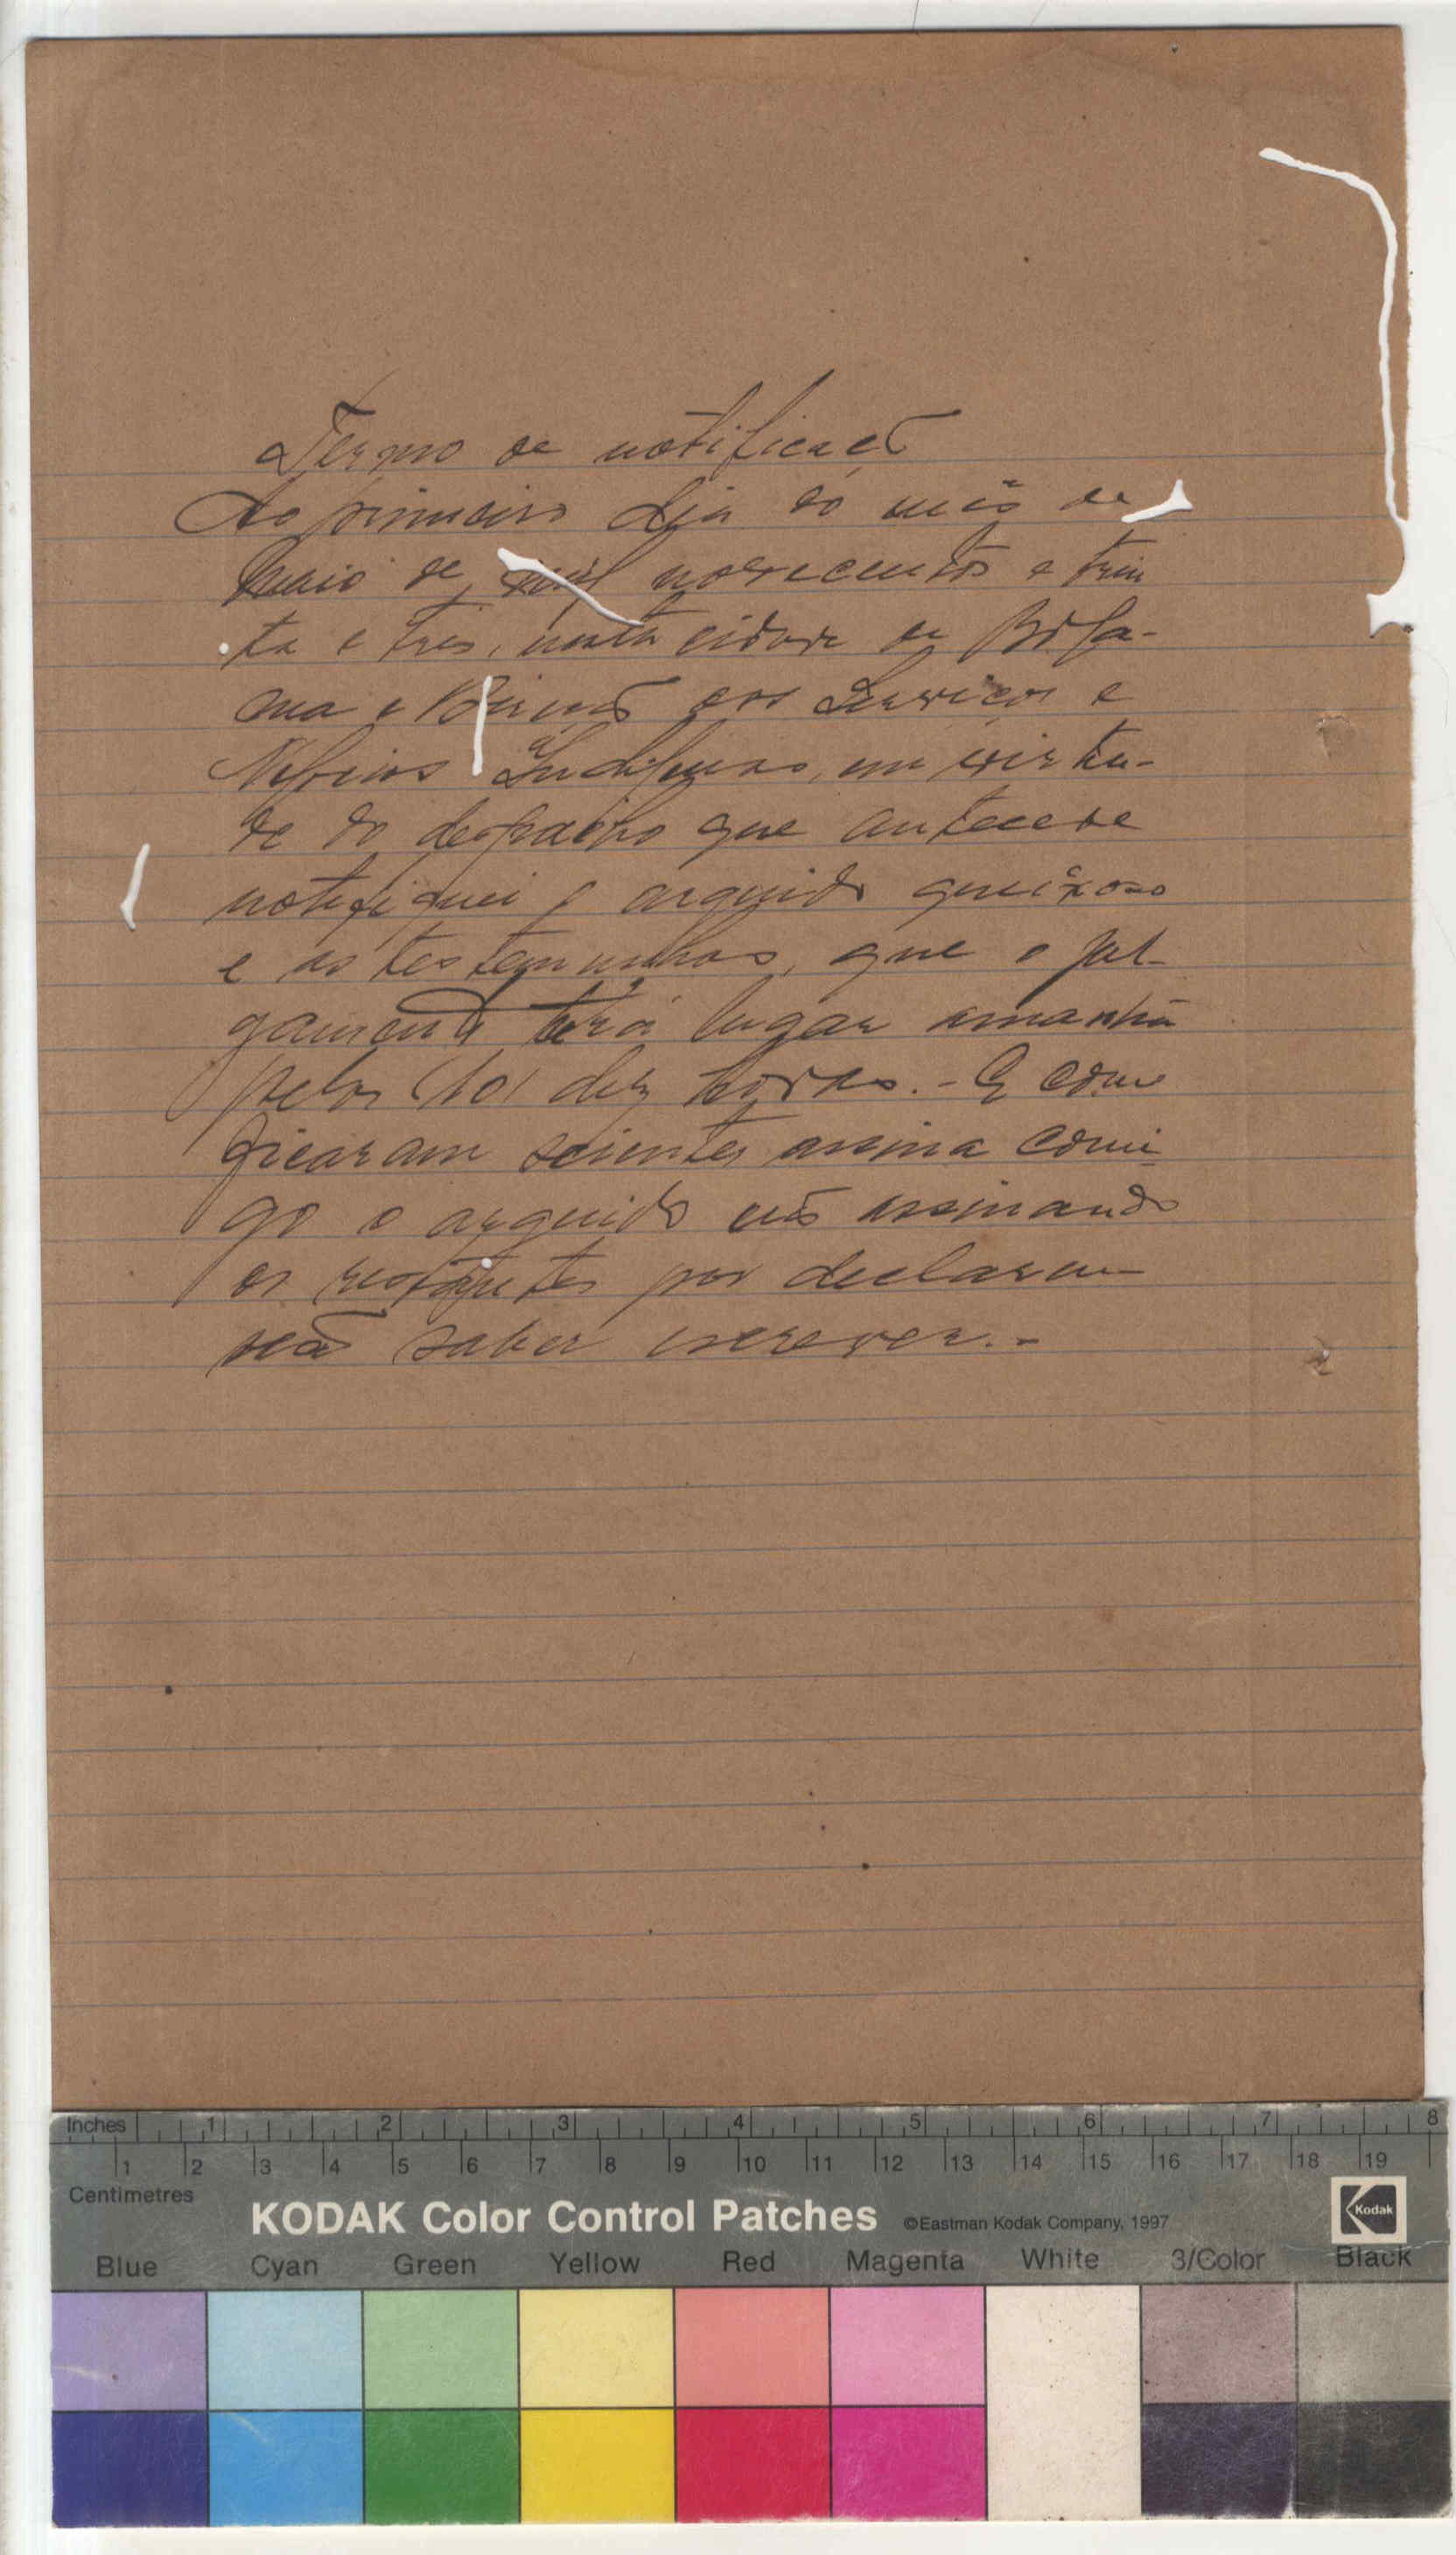 Termo de notificação
Ao primeiro dia do mês de
Maio de mil novecentos e trin
ta e tres, nesta cidade de Bola-
ma e Direcção dos Serviços e
Negocios Indigenas, em virtu-
de do despacho que antecede
notifiquei o arguido queixoso
e as testemunhas, que o jul-
gamento terá lugar amanhã
pelas (10) dez horas. - E como
ficaram scientes assina comi
go o arguido não assinando
os restantes por declararem
não saber escrever. -
Inches 1 2 3 4 5 6 7 8
1 2 3 4 5 6 7 8 9 10 11 12 13 14 15 16 17 18 19
Centimetres
KODAK Color Control Patches ©Eastman Kodak Company, 1997 Kodak
Blue Cyan Green Yellow Red Magenta White 3/Color Black